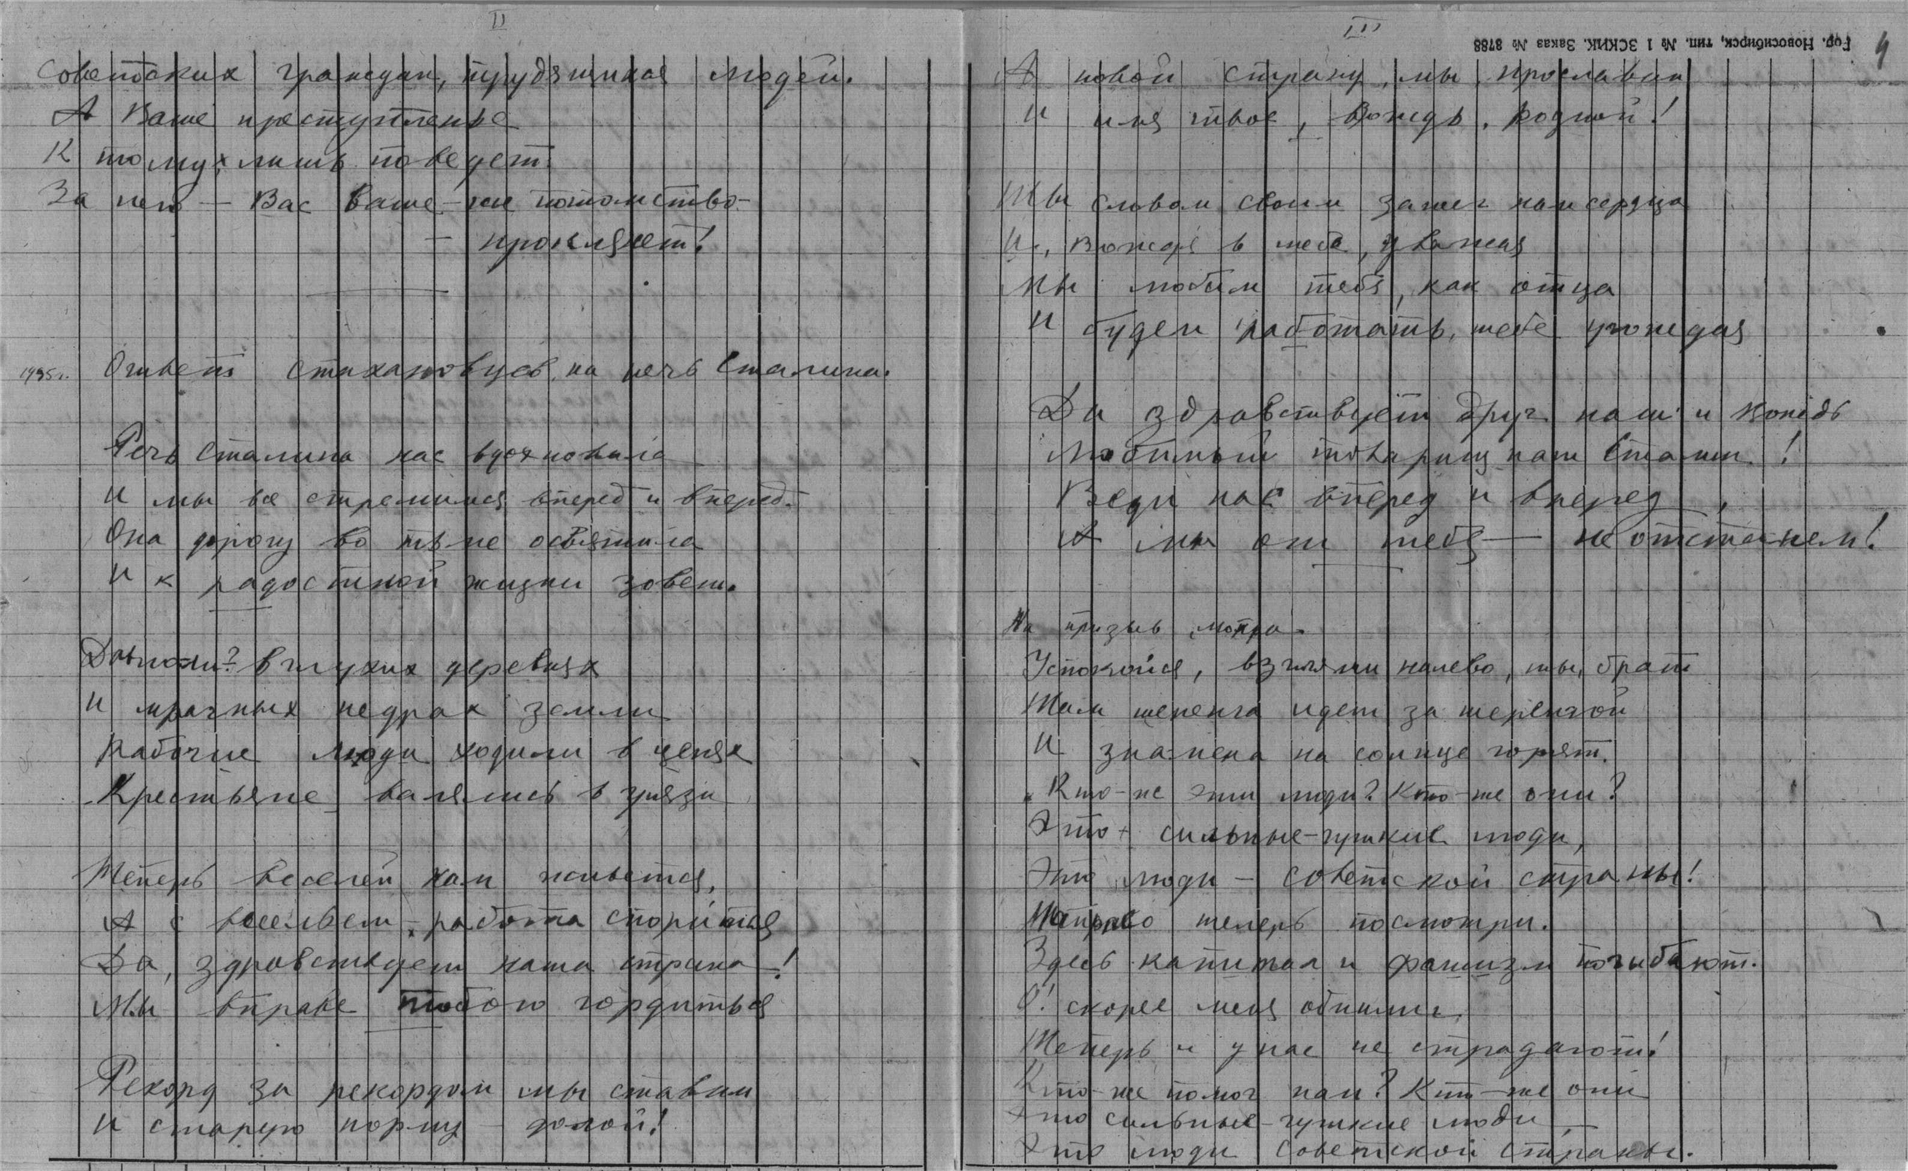 II
Советских граждан, трудящихся людей.
А Ваше преступленье
К тому, лишь поведет:
За него – Вас ваше-же потомство-
– проклянет!
1935г. Ответ стахановцев на речь Сталина.
Речь Сталина нас вдохновила
И мы все стремимся вперед и вперед.
Она дорогу во тьме осветила
И к радостной жизни зовет.
Давно-ли? в глухих деревнях
И мрачных недрах земли
Рабочие люди ходили в цепях
Крестьяне валялись в грязи
Теперь веселей нам живется,
А с весельем, работа спорится
Да, здравствует наша страна –!
Мы вправе тобою гордиться
Рекорд за рекордом мы ставим
И старую норму – долой!
III
Гор. Новосибирск, тип. № 1 ЗСКИК. Заказ № 8788
4
А новой страну, мы, прославим
И имя твое, Вождь, родной!
Ты словом своим зажег нам сердца
И, Вождя в тебе, уважая
Мы любим тебя, как отца
И будем работать, тебе угождая
Да здравствует друг наш и вождь
Любимый товарищ наш Сталин!
Веди нас вперед и вперед,
А мы от тебя – не отстанем!
На призыв Мопра.
Успокойся, взгляни налево, ты, брат
Там шеренга идет за шеренгой
И знамена на солнце горят.
Кто-же эти люди? Кто-же они?
Это – сильные-чуткие люди,
Это люди – советской страны!
Направо теперь посмотри.
Здесь капитал и фашизм погибают.
О! скорее меня обними,
Теперь и у нас не страдают!
Кто-же помог нам? Кто-же они
Это сильные-чуткие люди –
Это люди советской страны.